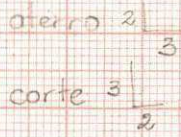 aterro 2
3
corte 3
2